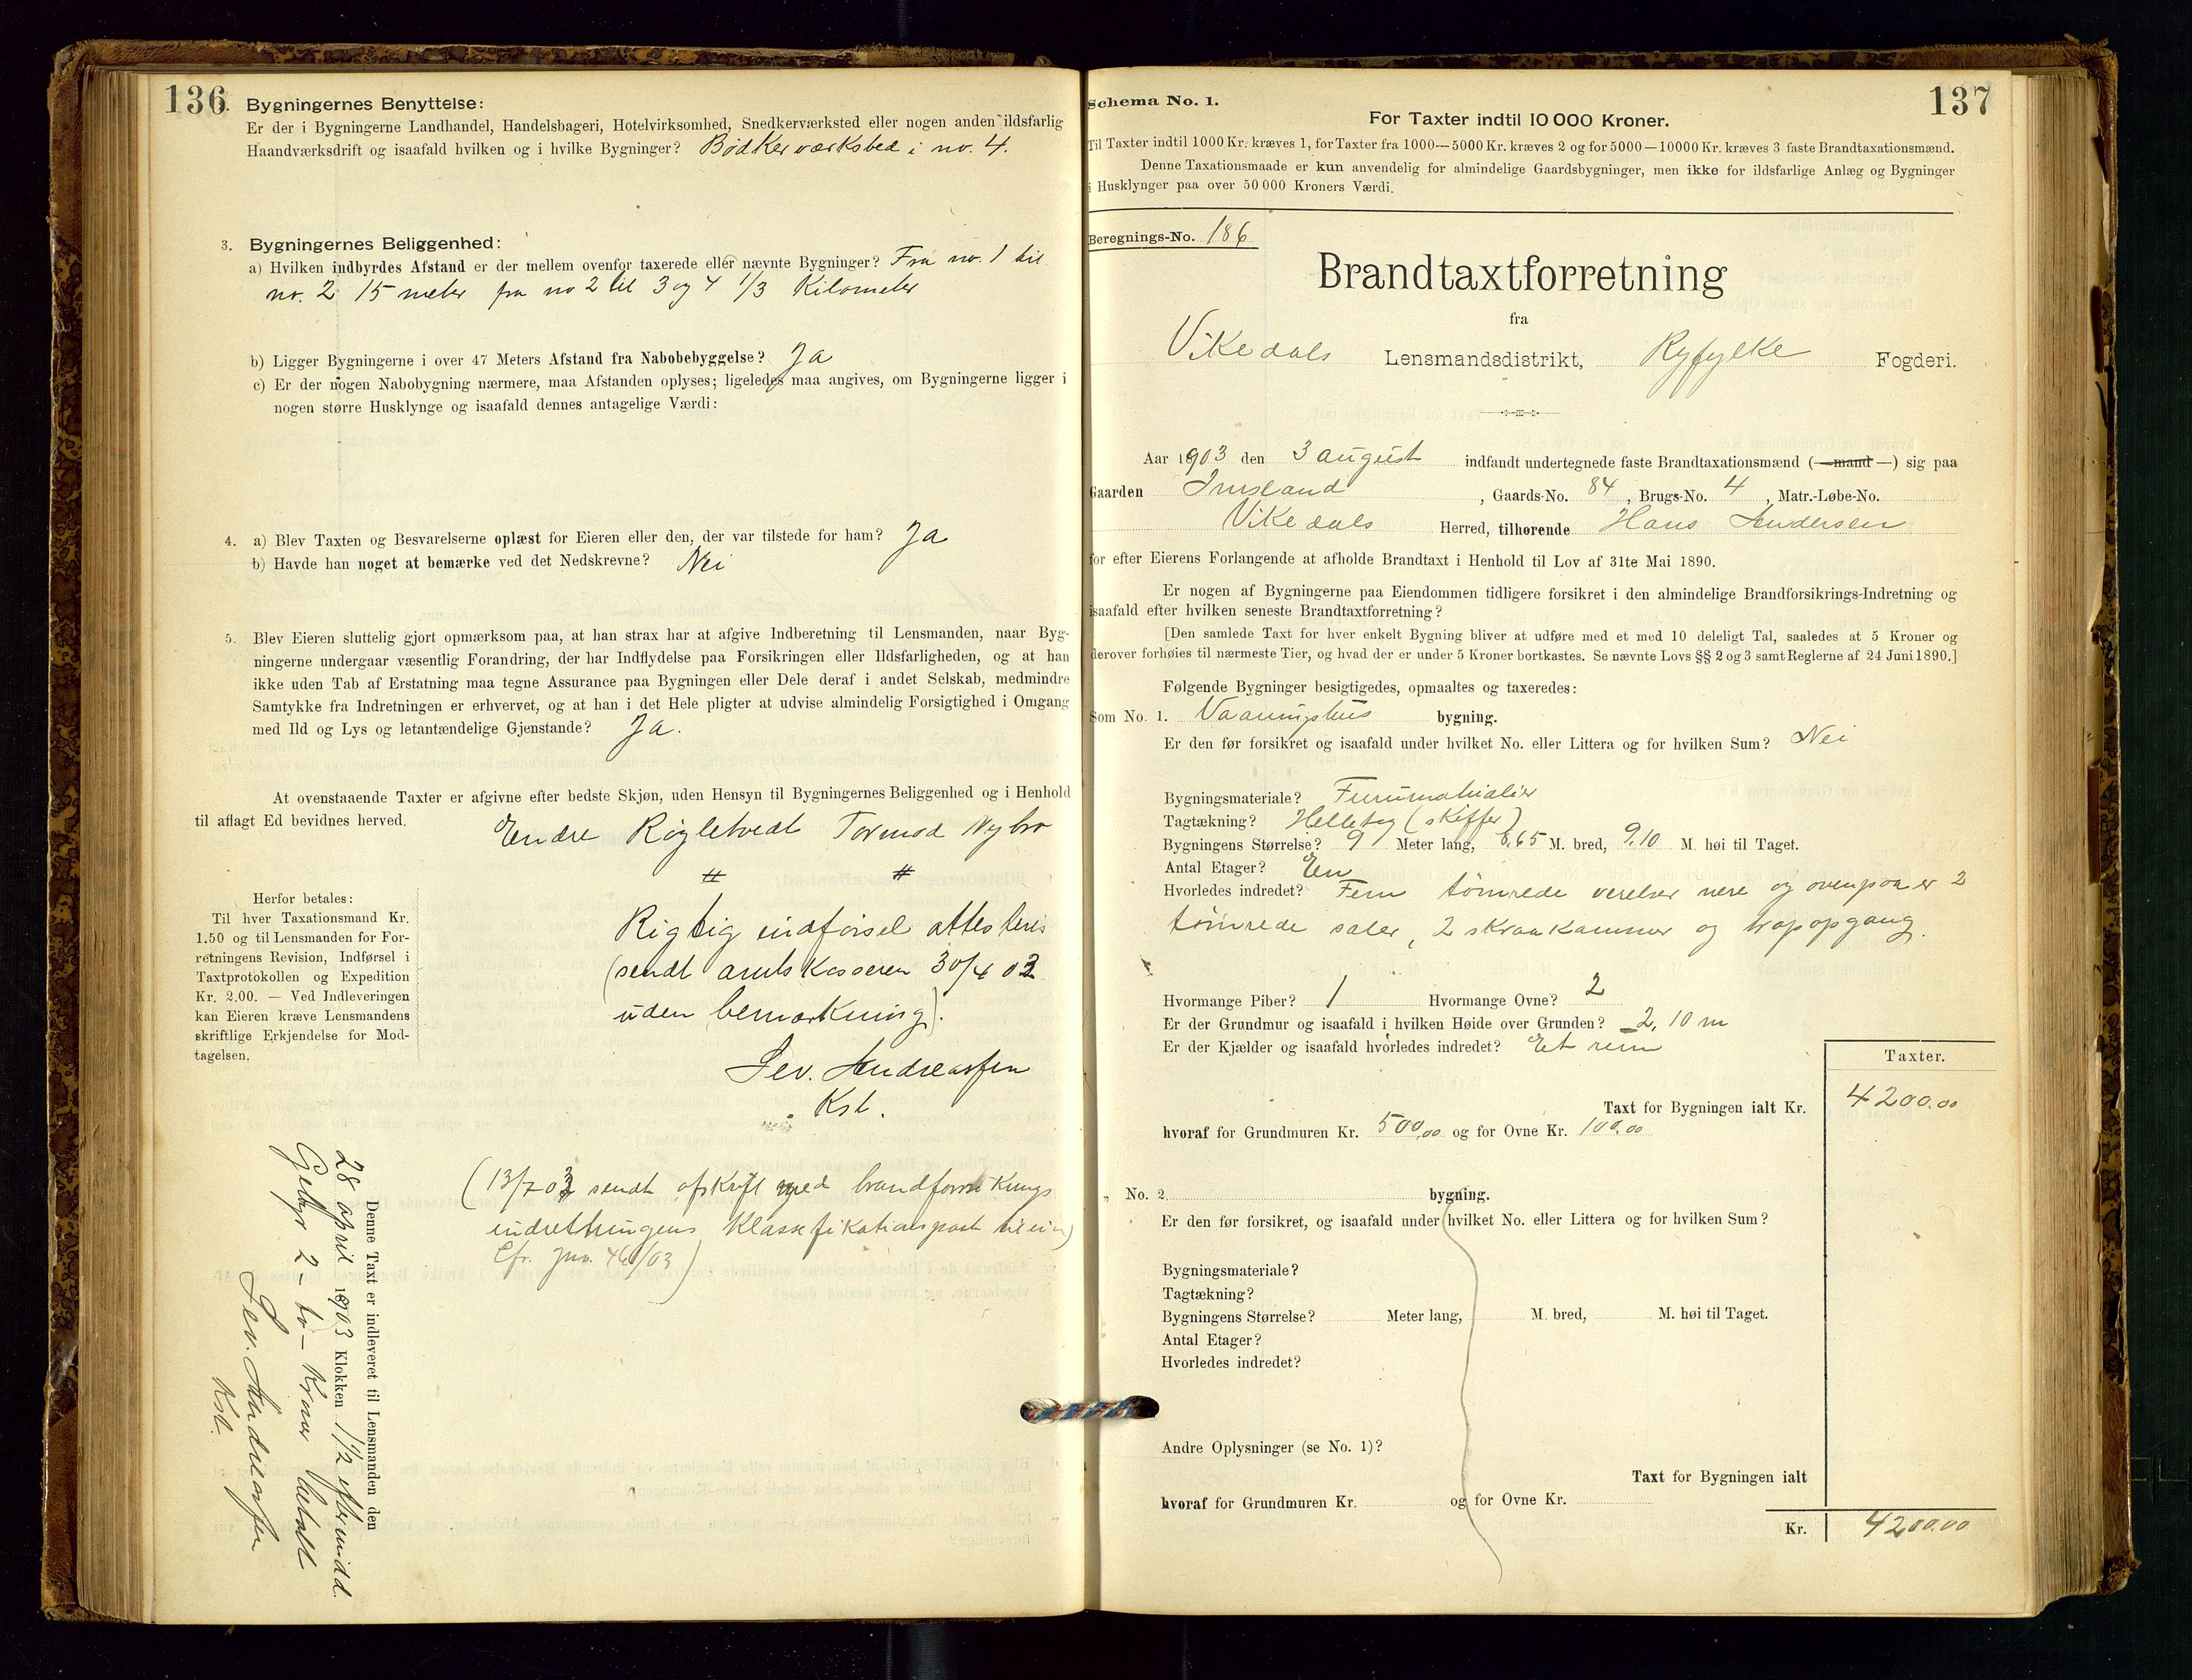 136. Bygningernes Benyttelse:
Er der i Bygningerne Landhandel, Handelsbageri, Hotelvirksomhed, Snedkerværksted eller nogen anden ildsfarlig
Haandværksdrift og isaafald hvilken og i hvilke Bygninger? Bødkerværksted i no. 4.
3. Bygningernes Beliggenhed:
a) Hvilken indbyrdes Afstand er der mellem ovenfor taxerede eller nævnte Bygninger? Fra no. 1 til
no. 2 15 meter fra no 2 til 3 og 4 1/3 Kilometer
b) Ligger Bygningerne i over 47 Meters Afstand fra Nabobebyggelse? Ja
c) Er der nogen Nabobygning nærmere, maa Afstanden oplyses; ligeledes maa angives, om Bygningerne ligger i
nogen større Husklynge og isaafald dennes antagelige Værdi:
4. a) Blev Taxten og Besvarelserne oplæst for Eieren eller den, der var tilstede for ham? Ja
b) Havde han noget at bemærke ved det Nedskrevne? Nei
5. Blev Eieren sluttelig gjort opmærksom paa, at han strax har at afgive Indberetning til Lensmanden, naar Byg-
ningerne undergaar væsentlig Forandring, der har Indflydelse paa Forsikringen eller Ildsfarligheden, og at han
ikke uden Tab af Erstatning maa tegne Assurance paa Bygningen eller Dele deraf i andet Selskab, medmindre
Samtykke fra Indretningen er erhvervet, og at han i det Hele pligter at udvise almindelig Forsigtighed i Omgang
med Ild og Lys og letantændelige Gjenstande? Ja.
At ovenstaaende Taxter er afgivne efter bedste Skjøn, uden Hensyn til Bygningernes Beliggenhed og i Henhold
til aflagt Ed bevidnes herved.
Endre Røgletvedt Tormod Nybro
# #
Herfor betales:
Til hver Taxationsmand Kr.
1.50 og til Lensmanden for For-
retningens Revision, Indførsel i
Taxtprotokollen og Expedition
Kr. 2.00. — Ved Indleveringen
kan Eieren kræve Lensmandens
skriftlige Erkjendelse for Mod-
tagelsen.
Rigtig indførsel attesteres
(sendt amtskasseren 30/4 03
uden bemærkning).
Sev. Andreassen
Kst.
(13/7 03 sendt afskrift med brandforsikrings
indretningens Klassefikationspaat
Cfr. Jno. 46/03)
Denne Taxt er indleveret til Lensmanden den
28 april 1903 Klokken 1 1/2 eftermidd.
Gebyr 2 - to - Kroner betalt
Sev. Andreassen
Kst.
137
Schema No. 1.
For Taxter indtil 10 000 Kroner.
Til Taxter indtil 1000 Kr. kræves 1, for Taxter fra 1000—5000 Kr. kræves 2 og for 5000—10000 Kr. kræves 3 faste Brandtaxationsmænd.
Denne Taxationsmaade er kun anvendelig for almindelige Gaardsbygninger, men ikke for ildsfarlige Anlæg og Bygninger
i Husklynger paa over 50 000 Kroners Værdi.
Beregnings-No. 186
Brandtaxtforretning
fra
Vikedals Lensmandsdistrikt, Ryfylke Fogderi.
Aar 1903 den 3 august indfandt undertegnede faste Brandtaxationsmænd (—mand—) sig paa
Gaarden Imsland, Gaards-No. 84, Brugs-No. 4, Matr.-Løbe-No.
Vikedals Herred, tilhørende Hans Andersen
for efter Eierens Forlangende at afholde Brandtaxt i Henhold til Lov af 31te Mai 1890.
Er nogen af Bygningerne paa Eiendommen tidligere forsikret i den almindelige Brandforsikrings-Indretning og
isaafald efter hvilken seneste Brandtaxtforretning?
[Den samlede Taxt for hver enkelt Bygning bliver at udføre med et med 10 deleligt Tal, saaledes at 5 Kroner og
derover forhøies til nærmeste Tier, og hvad der er under 5 Kroner bortkastes. Se nævnte Lovs §§ 2 og 3 samt Reglerne af 24 Juni 1890.]
Følgende Bygninger besigtigedes, opmaaltes og taxeredes:
Som No. 1. Vaaningshus bygning.
Er den før forsikret og isaafald under hvilket No. eller Littera og for hvilken Sum? Nei
Bygningsmateriale? Furumatrialier
Tagtækning? Helletag (skiffer)
Bygningens Størrelse? 9 Meter lang, 6,65 M. bred, 9,10 M. høi til Taget.
Antal Etager? En
Hvorledes indredet? Fem tømrede verelser nere og ovenpaa er 2
tømrede saler, 2 skraakammer og trapopgang.
Hvormange Piber? 1 Hvormange Ovne? 2
Er der Grundmur og isaafald i hvilken Høide over Grunden? 2,10 m
Er der Kjælder og isaafald hvorledes indredet? Et rum
Taxter.
Taxt for Bygningen ialt Kr. 4200.00
hvoraf for Grundmuren Kr. 500,00 og for Ovne Kr. 100.00
" No. 2 bygning.
Er den før forsikret, og isaafald under hvilket No. eller Littera og for hvilken Sum?
Bygningsmateriale?
Tagtækning?
Bygningens Størrelse? Meter lang, M. bred, M. høi til Taget.
Antal Etager?
Hvorledes indredet?
Andre Oplysninger (se No. 1)?
Taxt for Bygningen ialt
hvoraf for Grundmuren Kr. og for Ovne Kr.
Kr. 4200.00